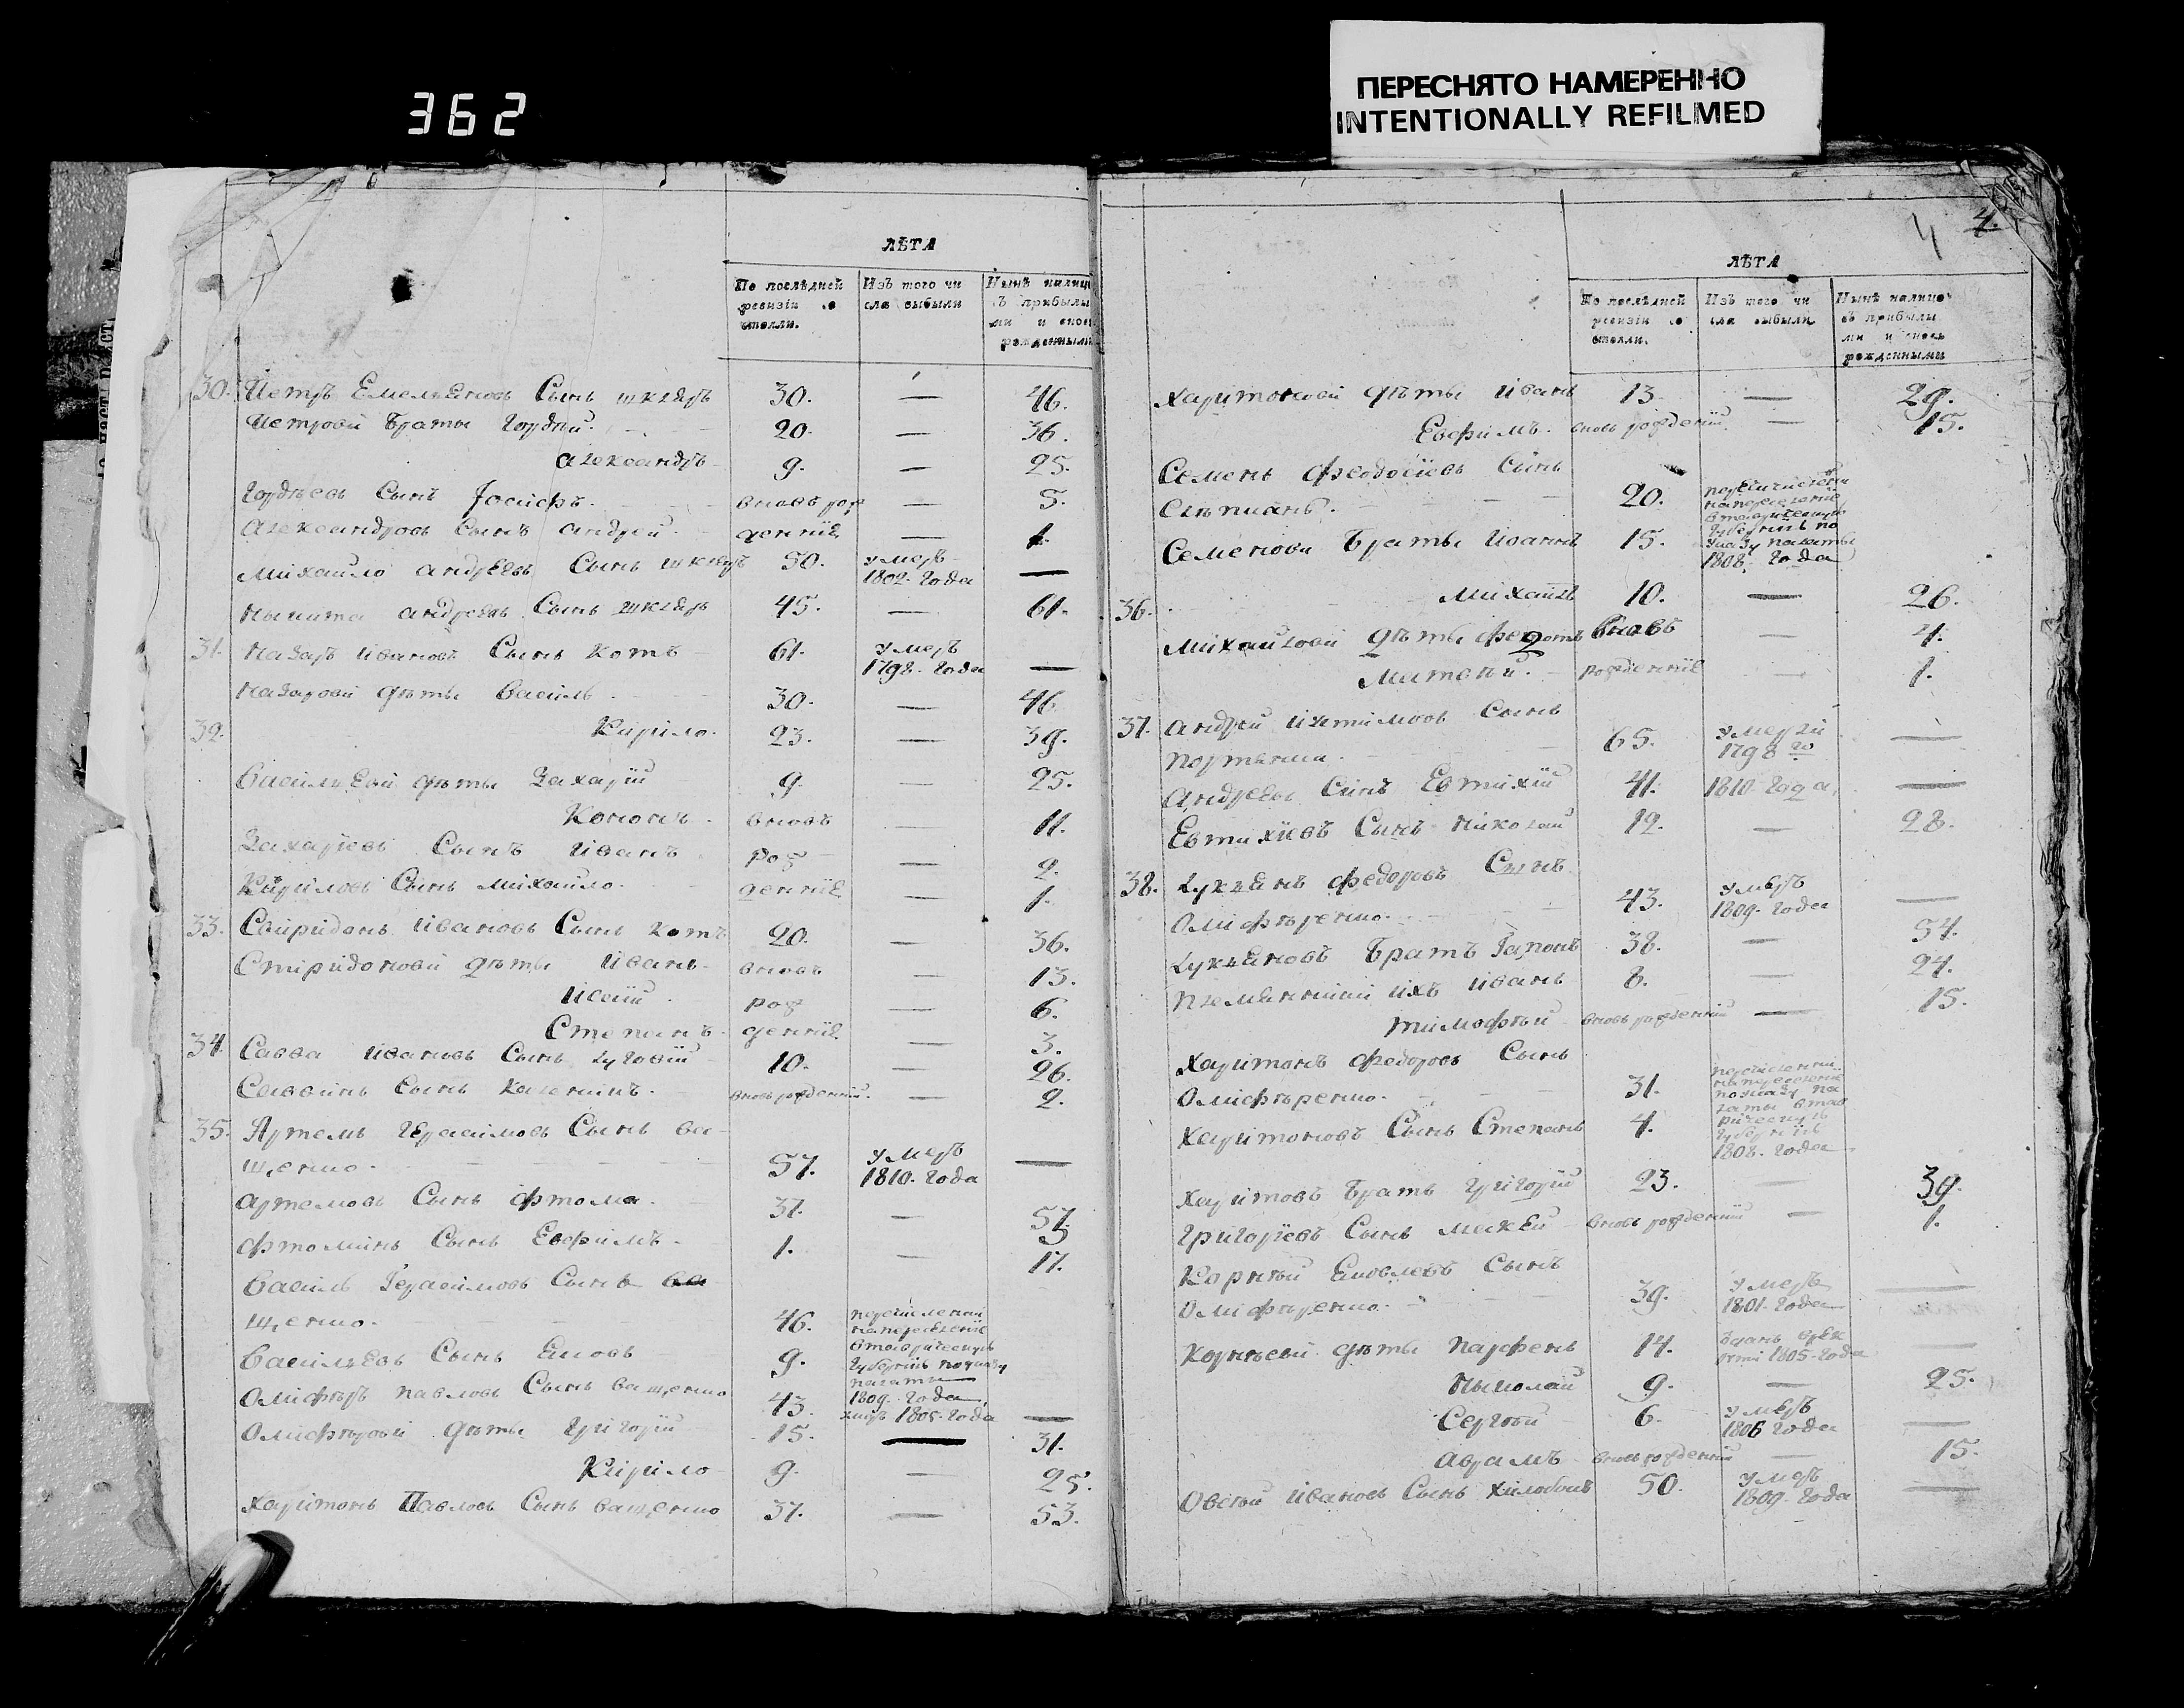 362
ПЕРЕСНЯТО НАМЕРЕННО
INTENTIONALLY REFILMED
ЛѢТА
По послѣдней ревизіи состояли.
Изъ того числа выбыли
Нынѣ налицо съ прибылыми и вновь рожденными
30. Петръ Емельяновъ Сынъ шкляръ 30. — 46.
Петрови Браты Гордѣй 20. — 36.
александръ 9. — 25.
Гордѣевъ Сынъ Іосифъ вновь рож — 5.
александровъ Сынъ андрей денніе — 1.
михайло андрѣевъ Сынъ шкляръ 50. умеръ 1802. года —
Никита андрѣевъ Сынъ шкляръ 45. — 61.
31. назаръ ивановъ Сынъ котъ 61. умеръ 1798. года —
назарови дѣты василь 30. — 46.
32. Кирило 23. — 39.
василѣеви дѣты Захарій 9. — 25.
Кононъ вновь — 11.
Захаріевъ Сынъ иванъ рож — 2.
Кириловъ Сынъ михайло денніе — 1.
33. Свиридонъ ивановъ Сынъ котъ 20. — 36.
Спиридонови дѣты иванъ вновь — 13.
рож — 6.
Степанъ денніе — 3.
34. Савва ивановъ Сынъ луговій 10. — 26.
Саввинъ Сынъ вновь рожденній — 2.
35. Артемъ Герасимовъ Сынъ ва-
щенко 57. умеръ 1810. года —
артемовъ Сынъ фтома 37. — 53.
фтоминъ Сынъ Евфимъ 1. — 17.
василь Герасимовъ Сынъ ва
щенко 46. перечисленни на переселеніе в таврическую губернію по указу палаты 1809. года
василѣевъ Сынъ яковъ 9.
Олифѣръ павловъ Сынъ ващенко 43. умеръ 1805. года —
Олифѣрови дѣты григорій 15. — 31.
Кирило 9. — 25.
Харитонъ Павловъ Сынъ ващенко 37. — 53.
4
4.
ЛѢТА
По послѣдней ревизіи состояли.
Изъ того числа выбыли
Нынѣ налицо съ прибылыми и вновь рожденными
Харитонови дѣты иванъ 13. — 29.
Евфимъ вновь рожденній — 15.
Семенъ феодосіевъ Сынъ
Слѣпианъ 20. перечислени на переселеніе в таврическую губернію по указу палаты 1808. года
Семенови Браты иоаннъ 15.
36. михаилъ 10. — 26.
михаилови дѣты федотъ вновь — 4.
рожденніе — 1.
37. андрей Сынъ
65. умерли 1798 го —
андрѣевъ Синъ Евтихій 41. 1810. года —
Евтихіевъ Сынъ николай 12. — 28.
38. Лукъянъ федоровъ Сынъ
Олифѣренко 43. умеръ 1809. года —
Лукъяновъ Братъ Гапонъ 38. — 54.
племянники ихъ иванъ 8. — 24.
тимофѣй вновь рожденній — 15.
Харитонъ федоровъ Сынъ
Олифѣренко 31. перечислени на переселеніе по указу палаты в таврическую губернію 1808. года
Харитоновъ Сынъ Степанъ 4.
Харитовъ Братъ григорій 23. — 39.
григоріевъ Сынъ вновь рожденній — 1.
Корнѣй яковлевъ Сынъ
Олифѣренко 39. умеръ 1801. года —
Корнѣеви дѣты парфенъ 14. зданъ врекруты 1805. года —
Николай 9. — 25.
Сергѣй 6. умеръ 1806 года —
аврамъ вновь рожденній — 15.
ивановъ Сынъ 50. умеръ 1809. года —